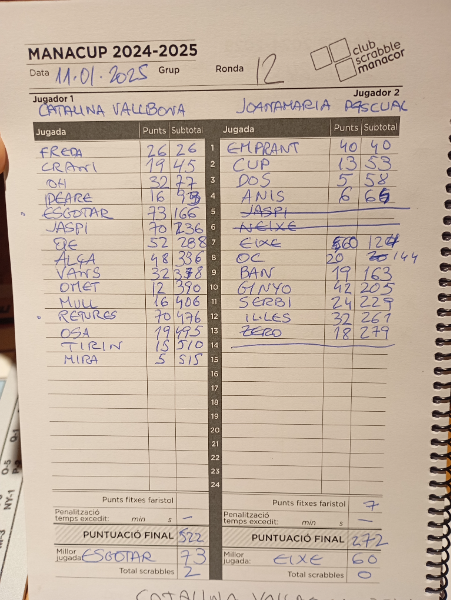 MANACUP 2024-2025
club scrabble manacor
Data 11.01.2025 Grup Ronda 12
Jugador 1 Jugador 2
CATALINA VALLBONA JOANAMARIA PASCUAL
Jugada Punts Subtotal Jugada Punts Subtotal
FREDA 26 26 1 EMPRANT 40 40
CRAWI 19 45 2 CUP 13 53
OH 32 77 3 DOS 5 58
IDEARE 16 93 4 ANIS 6 64
ESGOTAR 73 166 5 JASPI
JASPI 70 236 6 NEIXE
52 288 7 EIXE 60 124
ALÇA 48 336 8 OC 20 144
VANS 32 378 9 BAN 19 163
OMET 12 390 10 GINYO 42 205
MULL 16 406 11 SERBI 24 229
RETURES 70 476 12 IL·LES 32 261
OSA 19 495 13 ZERO 18 279
TIRIN 15 510 14
MIRA 5 515 15
16
17
18
19
20
21
22
23
24
Punts fitxes faristol Punts fitxes faristol 7
Penalització temps excedit: min s — Penalització temps excedit: min s —
PUNTUACIÓ FINAL 522 PUNTUACIÓ FINAL 272
Millor jugada: ESGOTAR 73 Millor jugada: EIXE 60
Total scrabbles 2 Total scrabbles 0